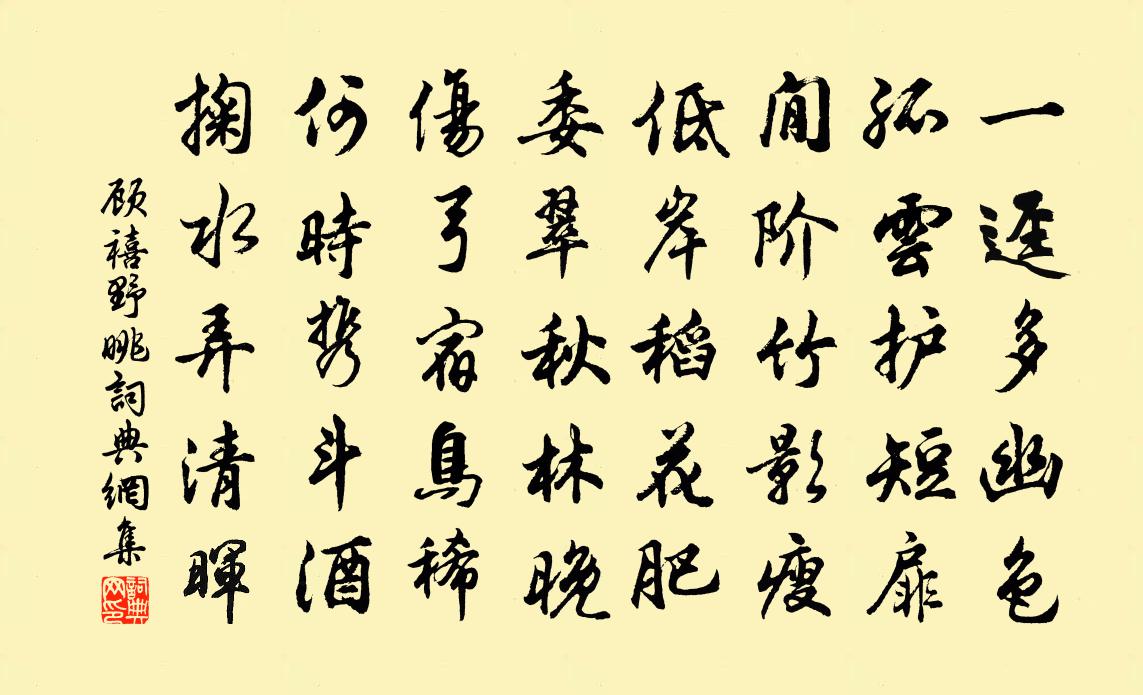 一逕多幽色
孤雲护短扉
閒阶竹影瘦
低岸稻花肥
委翠秋林晚
傷弓宿鳥稀
何時携斗酒
掬水弄清暉
顾禧野眺詞典網集
詞典网印